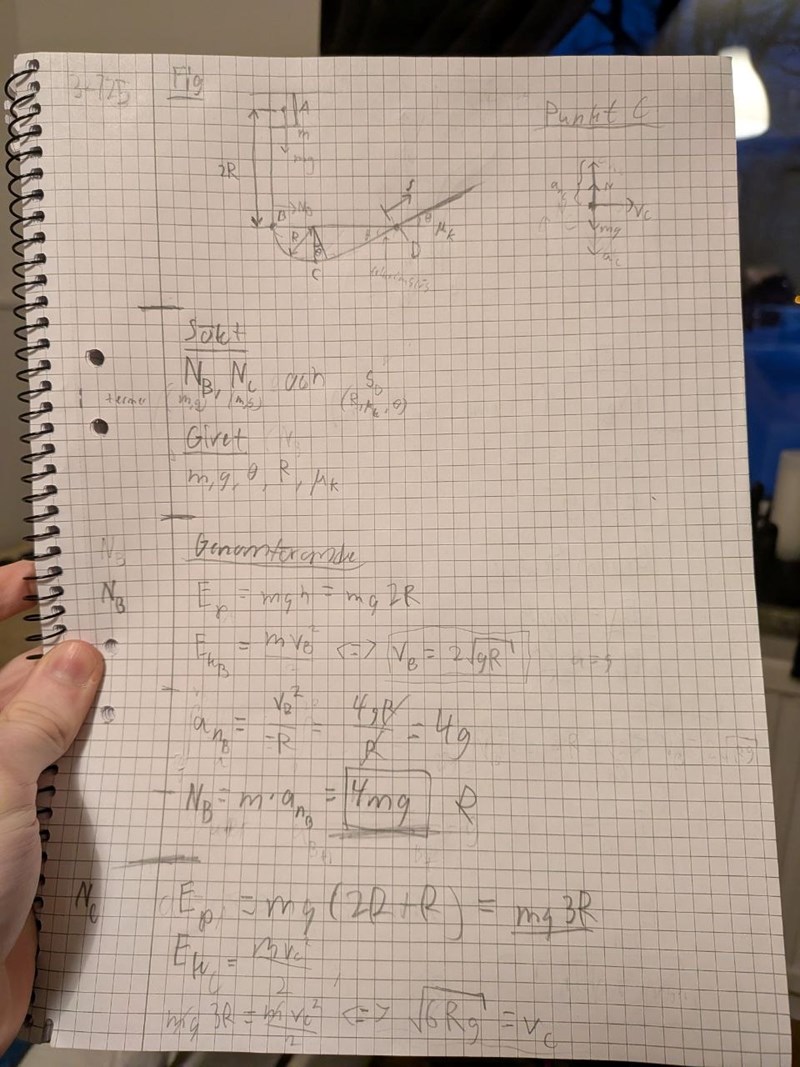 3-125
Fig
Punkt C
A
m
mg
2R
B
N_B
R
C
D
θ
μ_k
N
v_c
mg
a_c
Sökt
N_B, N_C och S_D
termer (m,g) (m,g) (R, μ_k, θ)
Givet
m, g, θ, R, μ_k
Genomförande
N_B
E_p = mgh = mg 2R
E_{k_B} = mv_B² <=> v_B = 2√gR
a_{n_B} = v_B² / R = 4gR / R = 4g
N_B = m · a_{n_B} = 4mg R
N_C
E_p = mg (2R + R) = mg 3R
E_{k_C} = mv_c² / 2
mg 3R = mv_c² / 2 <=> √6Rg = v_c